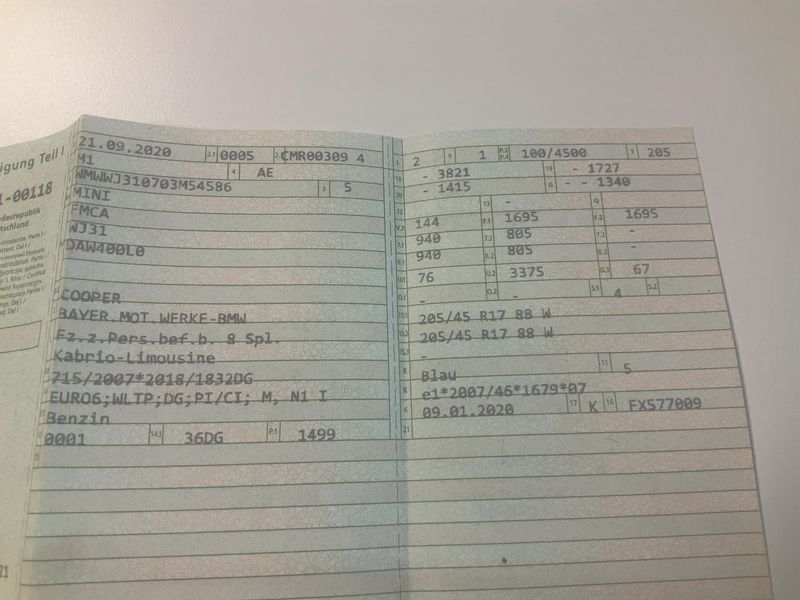 igung Teil I
-00118
desrepublik
tschland
21.09.2020 2.1 0005 2.2 CMR00309 4
M1 4 AE
WMWWJ310703M54586 3 5
MINI
FMCA
WJ31
DAW400L0
COOPER
BAYER.MOT.WERKE-BMW
Fz.z.Pers.bef.b. 8 Spl.
Kabrio-Limousine
715/2007*2018/1832DG
EURO6;WLTP;DG;PI/CI; M, N1 I
Benzin
0001 14.1 36DG P.1 1499
2 9 1 P.2 P.4 100/4500 T 205
18 - 3821 19 - 1727
20 - 1415 G - - 1340
12 13 - Q
V.7 144 F.1 1695 F.2 1695
7.1 940 7.2 805 7.3 -
8.1 940 8.2 805 8.3 -
U.1 76 U.2 3375 U.3 67
O.1 - O.2 - S.1 4 S.2
15.1 205/45 R17 88 W
15.2 205/45 R17 88 W
15.3 -
R Blau 11 5
K e1*2007/46*1679*07
6 09.01.2020 17 K 16 FX577009
21